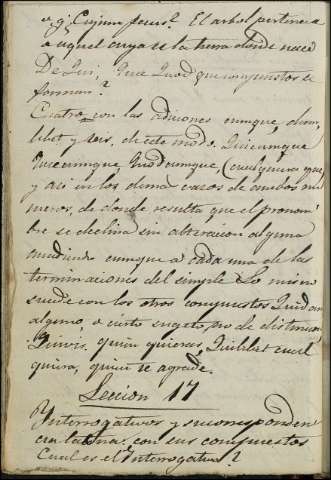 v.g. Cujum pecus? El arbol pertenece
a aquel cuya es la tierra donde nace
De Quis, Quae Quod que compuestos se
forman?
Cuatro con las adiciones cumque, dam,
libet y vis, de este modo. Quicumque
Quaecumque, Quodcumque, (cualquiera que)
y asi en los demas casos de ambos nu
meros, de donde resulta que el pronom
bre se declina sin alteracion alguna
añadiendo cumque a cada una de las
terminaciones del simple Lo mismo
sucede con los otros compuestos Quidam
alguno, o cierto sugeto, no de distincion,
Quivis, quien quieras, Quilibet cual
quiera, quien te agrade.
Leccion 17
Interrogativos y su correspondencia
con sus compuestos
Cual es el Interrogativo?